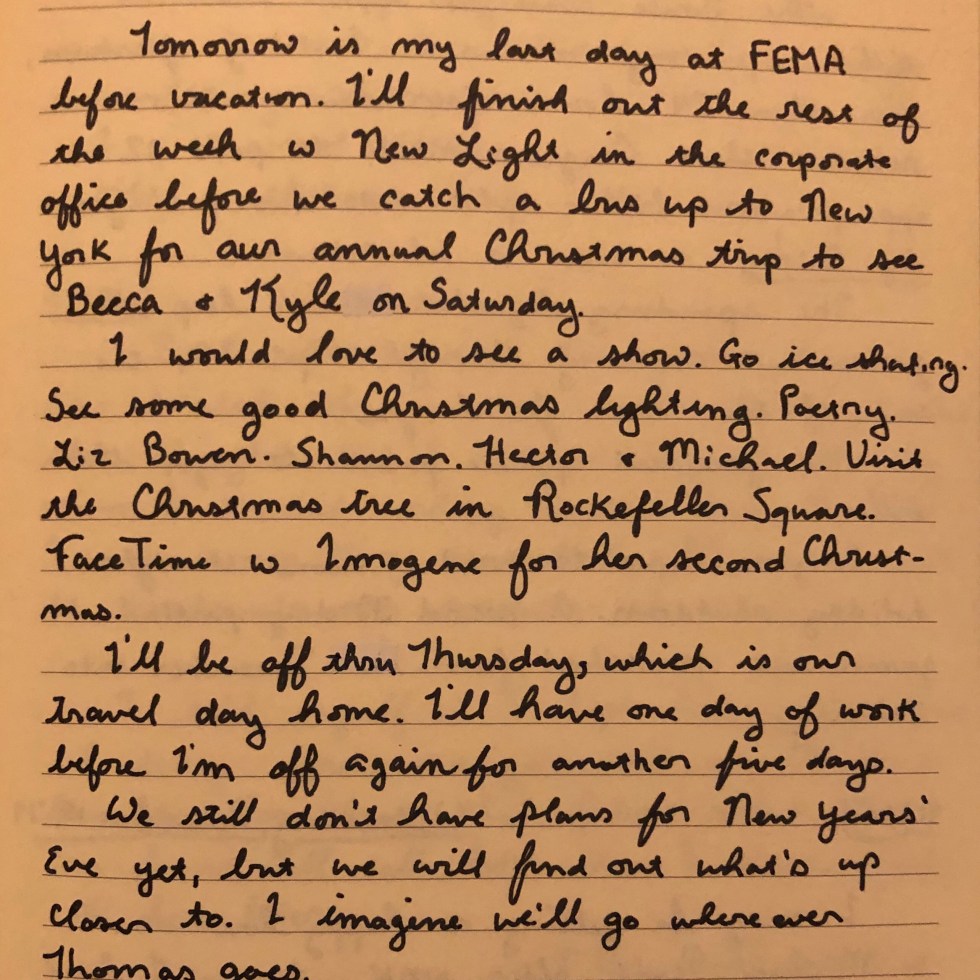 Tomorrow is my last day at FEMA
before vacation. I'll finish out the rest of
the week w New Light in the corporate
office before we catch a bus up to New
York for our annual Christmas trip to see
Becca & Kyle on Saturday.
I would love to see a show. Go ice skating.
See some good Christmas lighting. Poetry.
Liz Bowen. Shannon. Hector & Michael. Visit
the Christmas tree in Rockefeller Square.
FaceTime w Imogene for her second Christ-
mas.
I'll be off thru Thursday, which is our
travel day home. I'll have one day of work
before I'm off again for another five days.
We still don't have plans for New Years'
Eve yet, but we will find out what's up
closer to. I imagine we'll go where ever
Thomas goes.